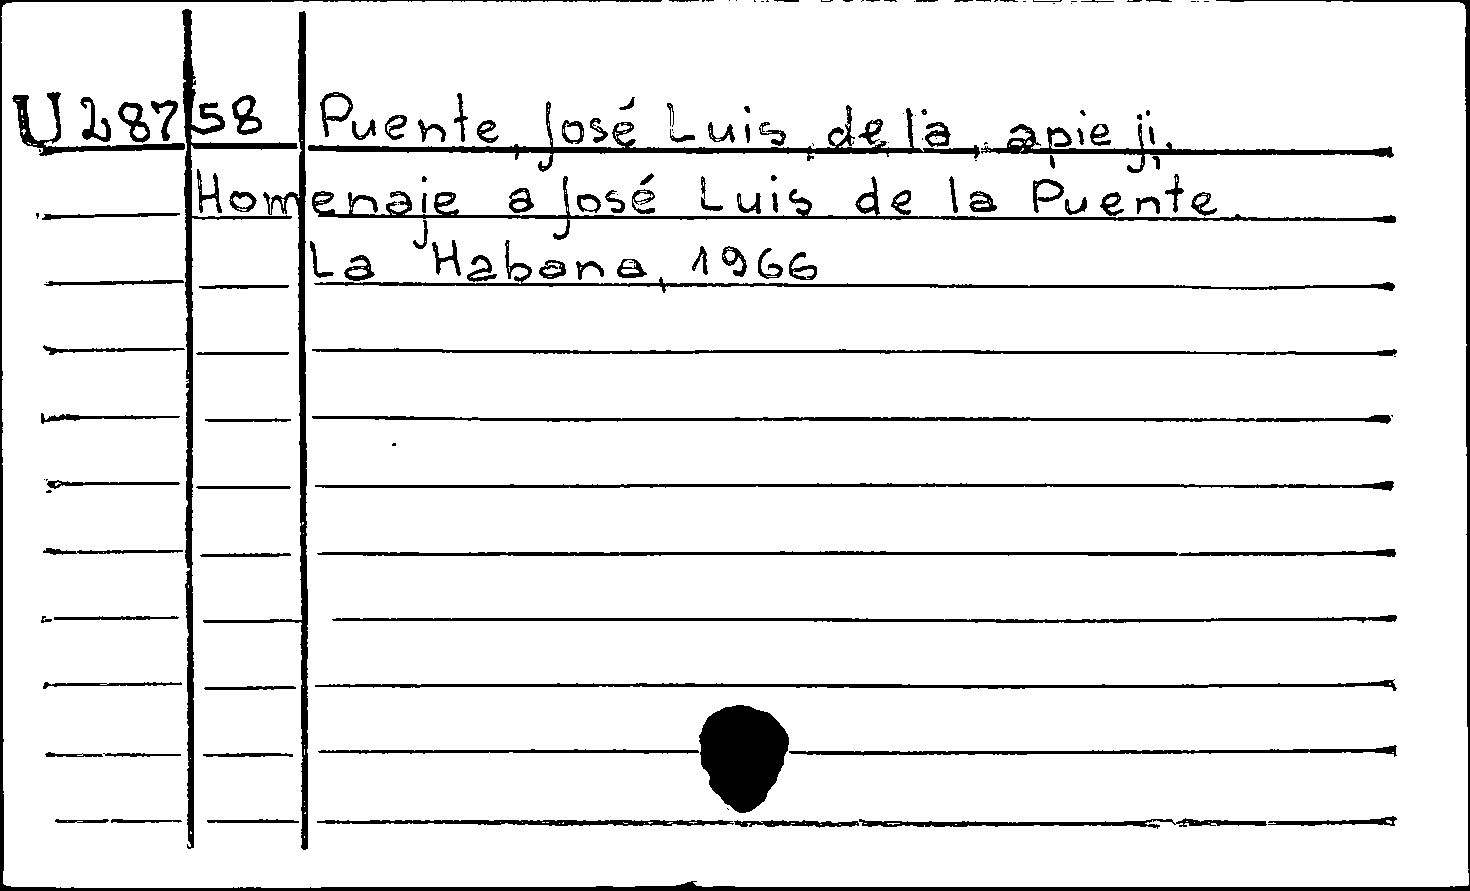 U 28758 Puente, José Luis, de la, apie jį.
Homenaje a José Luis de la Puente.
La Habana, 1966